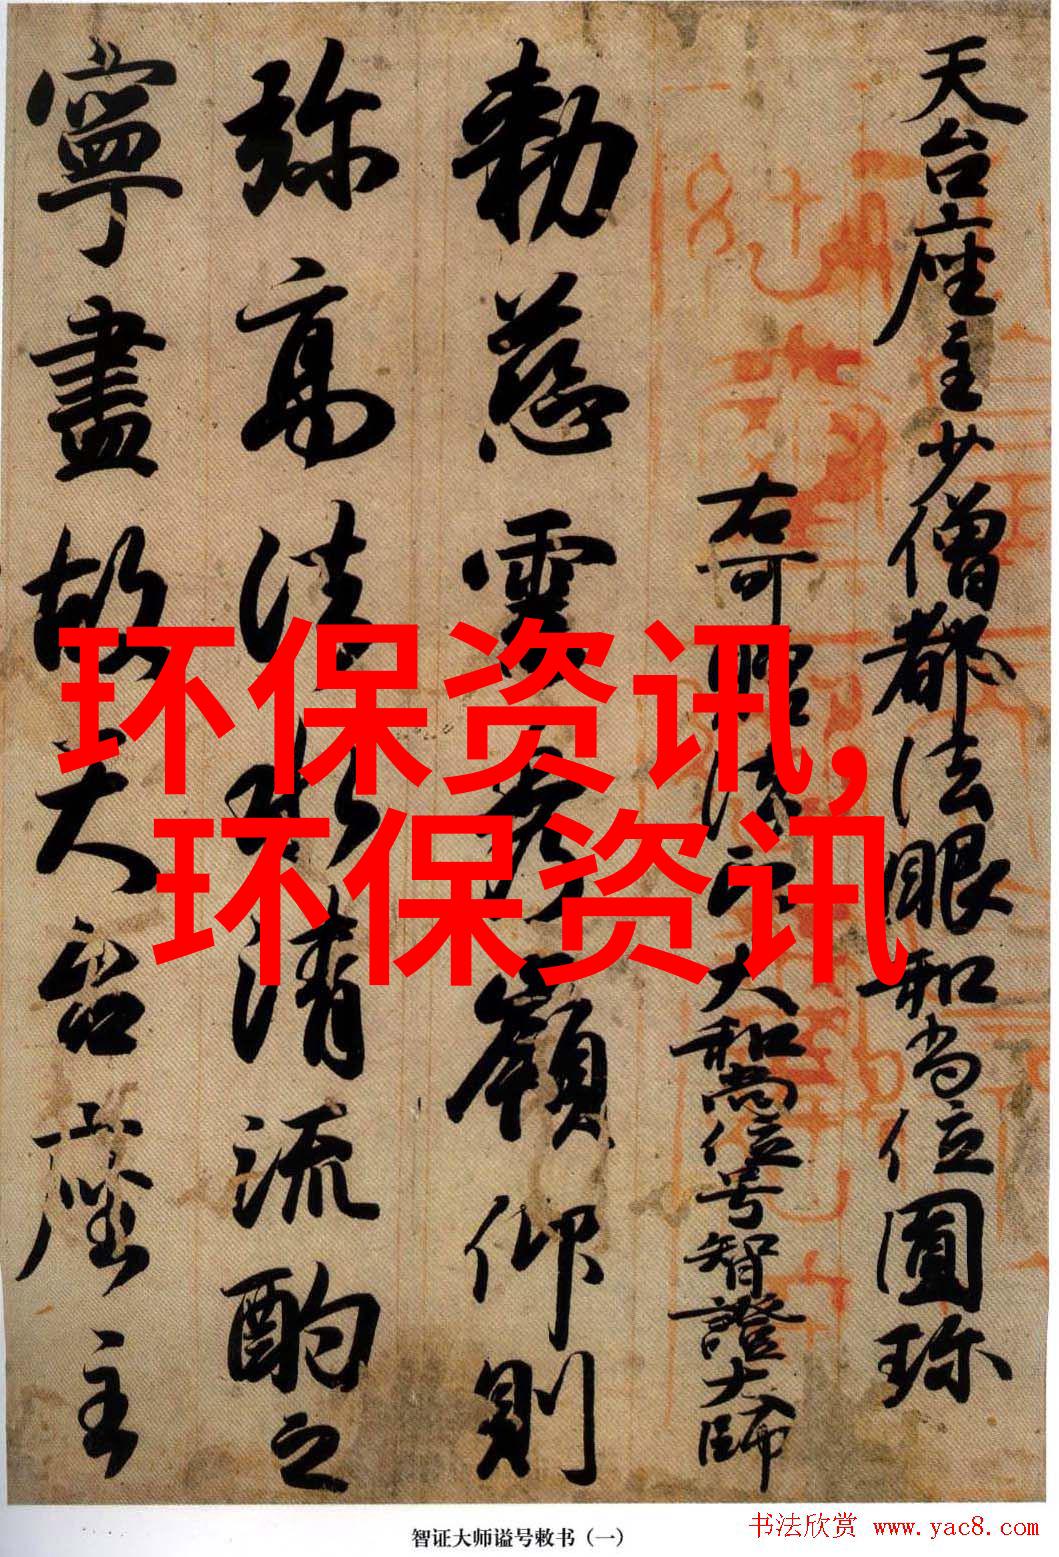 天台座主少僧都法眼和尚位圓珎
右可贈法印大和尚位号智證大師
勅慈雲秀嶺仰則
弥高法水清流酌之
寧盡故天台座主
环保资讯,
环保资讯
智证大师谥号敕书（一）
书法欣赏 www.yac8.com